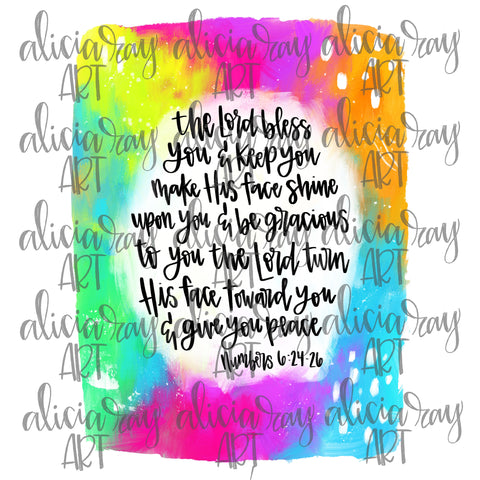 the Lord bless
you & keep you
make His face shine
upon you & be gracious
to you the Lord turn
His face toward you
& give you peace
Numbers 6:24-26
alicia ray ART alicia ray ART alicia ray ART
alicia ray ART alicia ray ART alicia ray ART
alicia ray ART alicia ray ART alicia ray ART
alicia ray ART alicia ray ART alicia ray ART
alicia ray ART alicia ray ART alicia ray ART